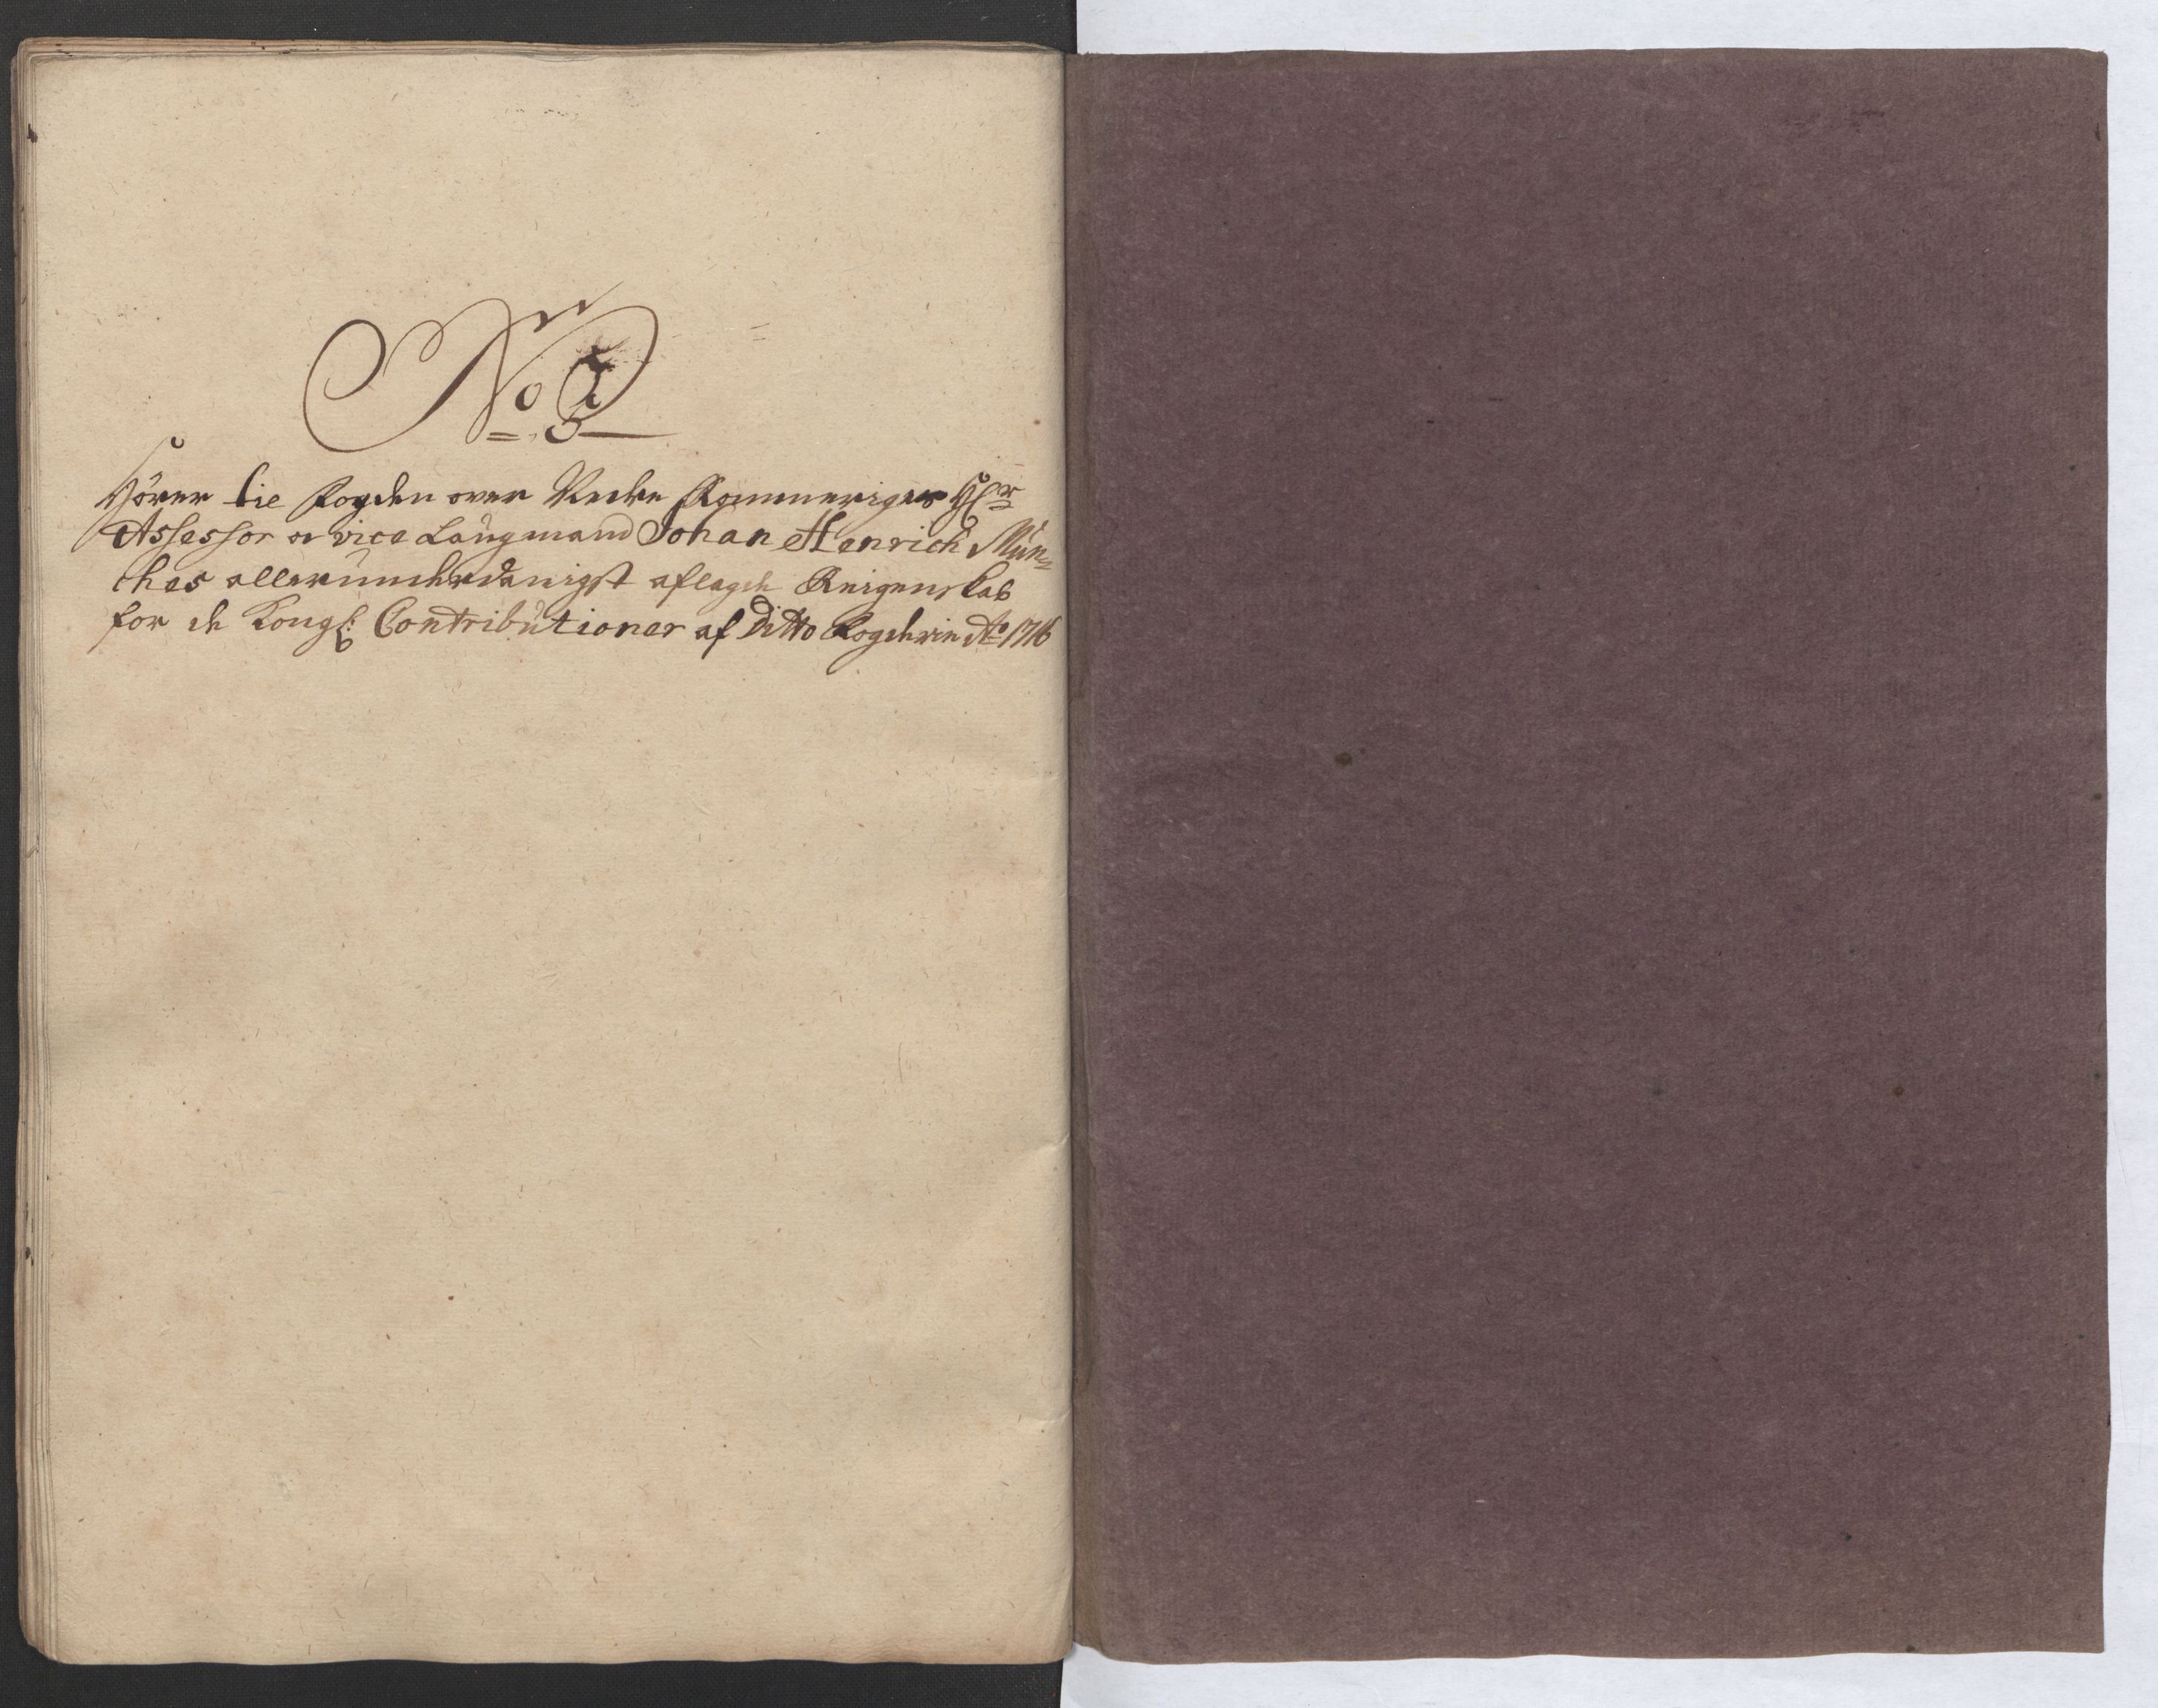 No
Hører til Fogden over Nedre Rommeriges Hr
Assessor og vice Laugmand Johan Henrich Mün=
ches allerunderdanigst aflagde Reigenskab
for de Kongl: Contributioner af Ditto Fogderie Ao 1716